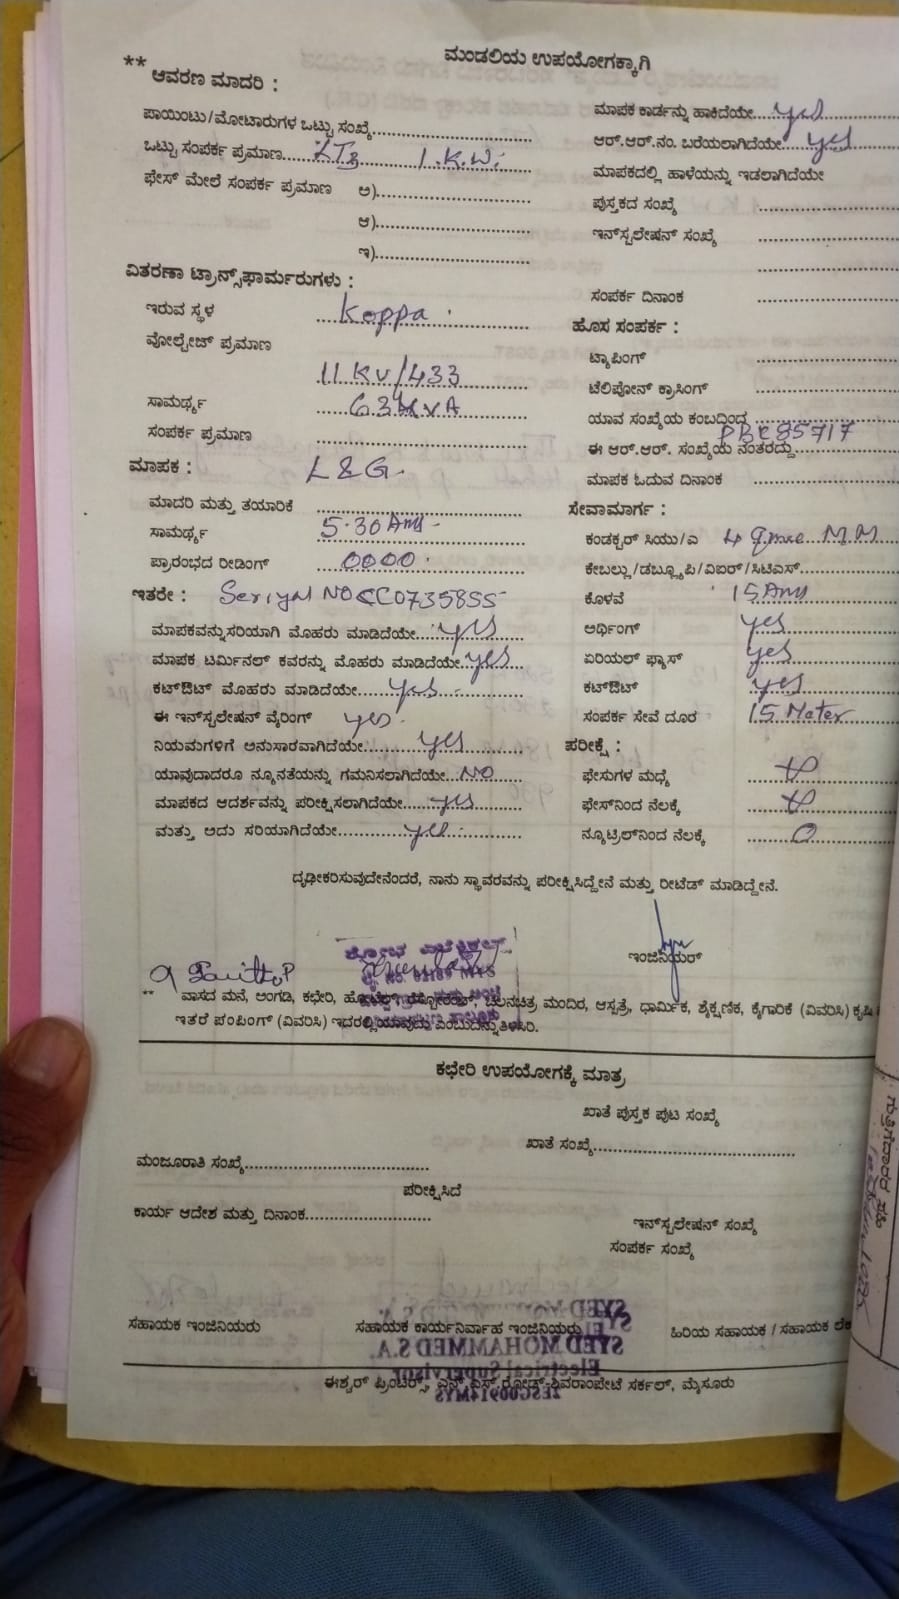 ಮಂಡಲಿಯ ಉಪಯೋಗಕ್ಕಾಗಿ
** ಆವರಣ ಮಾದರಿ :
ಪಾಯಿಂಟು/ಮೋಟಾರುಗಳ ಒಟ್ಟು ಸಂಖ್ಯೆ
ಒಟ್ಟು ಸಂಪರ್ಕ ಪ್ರಮಾಣ 1.K.W.
ಫೇಸ್ ಮೇಲೆ ಸಂಪರ್ಕ ಪ್ರಮಾಣ ಅ)
ಆ)
ಇ)
ವಿತರಣಾ ಟ್ರಾನ್ಸ್‌ಫಾರ್ಮರುಗಳು :
ಇರುವ ಸ್ಥಳ Koppa
ವೋಲ್ಟೇಜ್ ಪ್ರಮಾಣ
11 KV/433
ಸಾಮರ್ಥ್ಯ 63 KVA
ಸಂಪರ್ಕ ಪ್ರಮಾಣ
ಮಾಪಕ : L&G.
ಮಾದರಿ ಮತ್ತು ತಯಾರಿಕೆ
ಸಾಮರ್ಥ್ಯ 5-30 Ams
ಪ್ರಾರಂಭದ ರೀಡಿಂಗ್ 0000
ಇತರೇ : Seriyal NO 0735855
ಮಾಪಕವನ್ನು ಸರಿಯಾಗಿ ಮೊಹರು ಮಾಡಿದೆಯೇ yes
ಮಾಪಕ ಟರ್ಮಿನಲ್ ಕವರನ್ನು ಮೊಹರು ಮಾಡಿದೆಯೇ yes
ಕಟ್‌ಔಟ್ ಮೊಹರು ಮಾಡಿದೆಯೇ yes
ಈ ಇನ್‌ಸ್ಟಲೇಷನ್ ವೈರಿಂಗ್ yes
ನಿಯಮಗಳಿಗೆ ಅನುಸಾರವಾಗಿದೆಯೇ yes
ಯಾವುದಾದರೂ ನ್ಯೂನತೆಯನ್ನು ಗಮನಿಸಲಾಗಿದೆಯೇ NO
ಮಾಪಕದ ಆದರ್ಶವನ್ನು ಪರೀಕ್ಷಿಸಲಾಗಿದೆಯೇ yes
ಮತ್ತು ಅದು ಸರಿಯಾಗಿದೆಯೇ yes
ಮಾಪಕ ಕಾರ್ಡನ್ನು ಹಾಕಿದೆಯೇ yes
ಆರ್.ಆರ್.ನಂ. ಬರೆಯಲಾಗಿದೆಯೇ yes
ಮಾಪಕದಲ್ಲಿ ಹಾಳೆಯನ್ನು ಇಡಲಾಗಿದೆಯೇ
ಪುಸ್ತಕದ ಸಂಖ್ಯೆ
ಇನ್‌ಸ್ಟಲೇಷನ್ ಸಂಖ್ಯೆ
ಸಂಪರ್ಕ ದಿನಾಂಕ
ಹೊಸ ಸಂಪರ್ಕ :
ಟ್ಯಾಪಿಂಗ್
ಟೆಲಿಫೋನ್ ಕ್ರಾಸಿಂಗ್
ಯಾವ ಸಂಖ್ಯೆಯ ಕಂಬದಿಂದ
ಈ ಆರ್.ಆರ್. ಸಂಖ್ಯೆಯ ನಂತರದ್ದು 85717
ಮಾಪಕ ಓದುವ ದಿನಾಂಕ
ಸೇವಾಮಾರ್ಗ :
ಕಂಡಕ್ಟರ್ ಸಿಯು/ಎ M.M
ಕೇಬಲ್ಲು/ಡಬ್ಲ್ಯೂಪಿ/ವಿಐರ್/ಸಿಟಿಎಸ್
ಕೊಳವೆ 15 Ams
ಅರ್ಥಿಂಗ್ yes
ಏರಿಯಲ್ ಫ್ಯೂಸ್ yes
ಕಟ್‌ಔಟ್ yes
ಸಂಪರ್ಕ ಸೇವೆ ದೂರ 15 Meter
ಪರೀಕ್ಷೆ :
ಫೇಸುಗಳ ಮಧ್ಯೆ
ಫೇಸ್‌ನಿಂದ ನೆಲಕ್ಕೆ
ನ್ಯೂಟ್ರಿಲ್‌ನಿಂದ ನೆಲಕ್ಕೆ 0
ದೃಢೀಕರಿಸುವುದೇನೆಂದರೆ, ನಾನು ಸ್ಥಾವರವನ್ನು ಪರೀಕ್ಷಿಸಿದ್ದೇನೆ ಮತ್ತು ರೀಟೆಡ್ ಮಾಡಿದ್ದೇನೆ.
ಇಂಜಿನಿಯರ್
** ವಾಸದ ಮನೆ, ಅಂಗಡಿ, ಕಛೇರಿ, ಹೋಟೆಲ್, ರೆಸ್ಟೋರೆಂಟ್, ಚಲನಚಿತ್ರ ಮಂದಿರ, ಆಸ್ಪತ್ರೆ, ಧಾರ್ಮಿಕ, ಶೈಕ್ಷಣಿಕ, ಕೈಗಾರಿಕೆ (ವಿವರಿಸಿ) ಕೃಷಿ
ಇತರೆ ಪಂಪಿಂಗ್ (ವಿವರಿಸಿ) ಇದರಲ್ಲಿ ಯಾವುದು ಎಂಬುದನ್ನು ತಿಳಿಸಿರಿ.
ಕಛೇರಿ ಉಪಯೋಗಕ್ಕೆ ಮಾತ್ರ
ಖಾತೆ ಪುಸ್ತಕ ಪುಟ ಸಂಖ್ಯೆ
ಖಾತೆ ಸಂಖ್ಯೆ
ಮಂಜೂರಾತಿ ಸಂಖ್ಯೆ
ಪರೀಕ್ಷಿಸಿದೆ
ಕಾರ್ಯ ಆದೇಶ ಮತ್ತು ದಿನಾಂಕ
ಇನ್‌ಸ್ಟಲೇಷನ್ ಸಂಖ್ಯೆ
ಸಂಪರ್ಕ ಸಂಖ್ಯೆ
ಸಹಾಯಕ ಇಂಜಿನಿಯರು ಸಹಾಯಕ ಕಾರ್ಯನಿರ್ವಾಹ ಇಂಜಿನಿಯರು ಹಿರಿಯ ಸಹಾಯಕ / ಸಹಾಯಕ
SYED MOHAMMED S.A.
Electrical Supervisor
ಈಶ್ವರ್ ಪ್ರಿಂಟರ್ಸ್, ಎನ್.ಎಸ್.ರೋಡ್-ಶಿವರಾಂಪೇಟೆ ಸರ್ಕಲ್, ಮೈಸೂರು